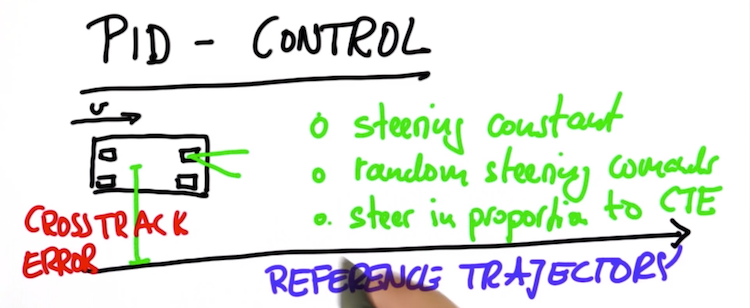 PID - CONTROL
v
o steering constant
o random steering comands
o. steer in proportion to CTE
CROSSTRACK
ERROR
REFERENCE TRAJECTORY